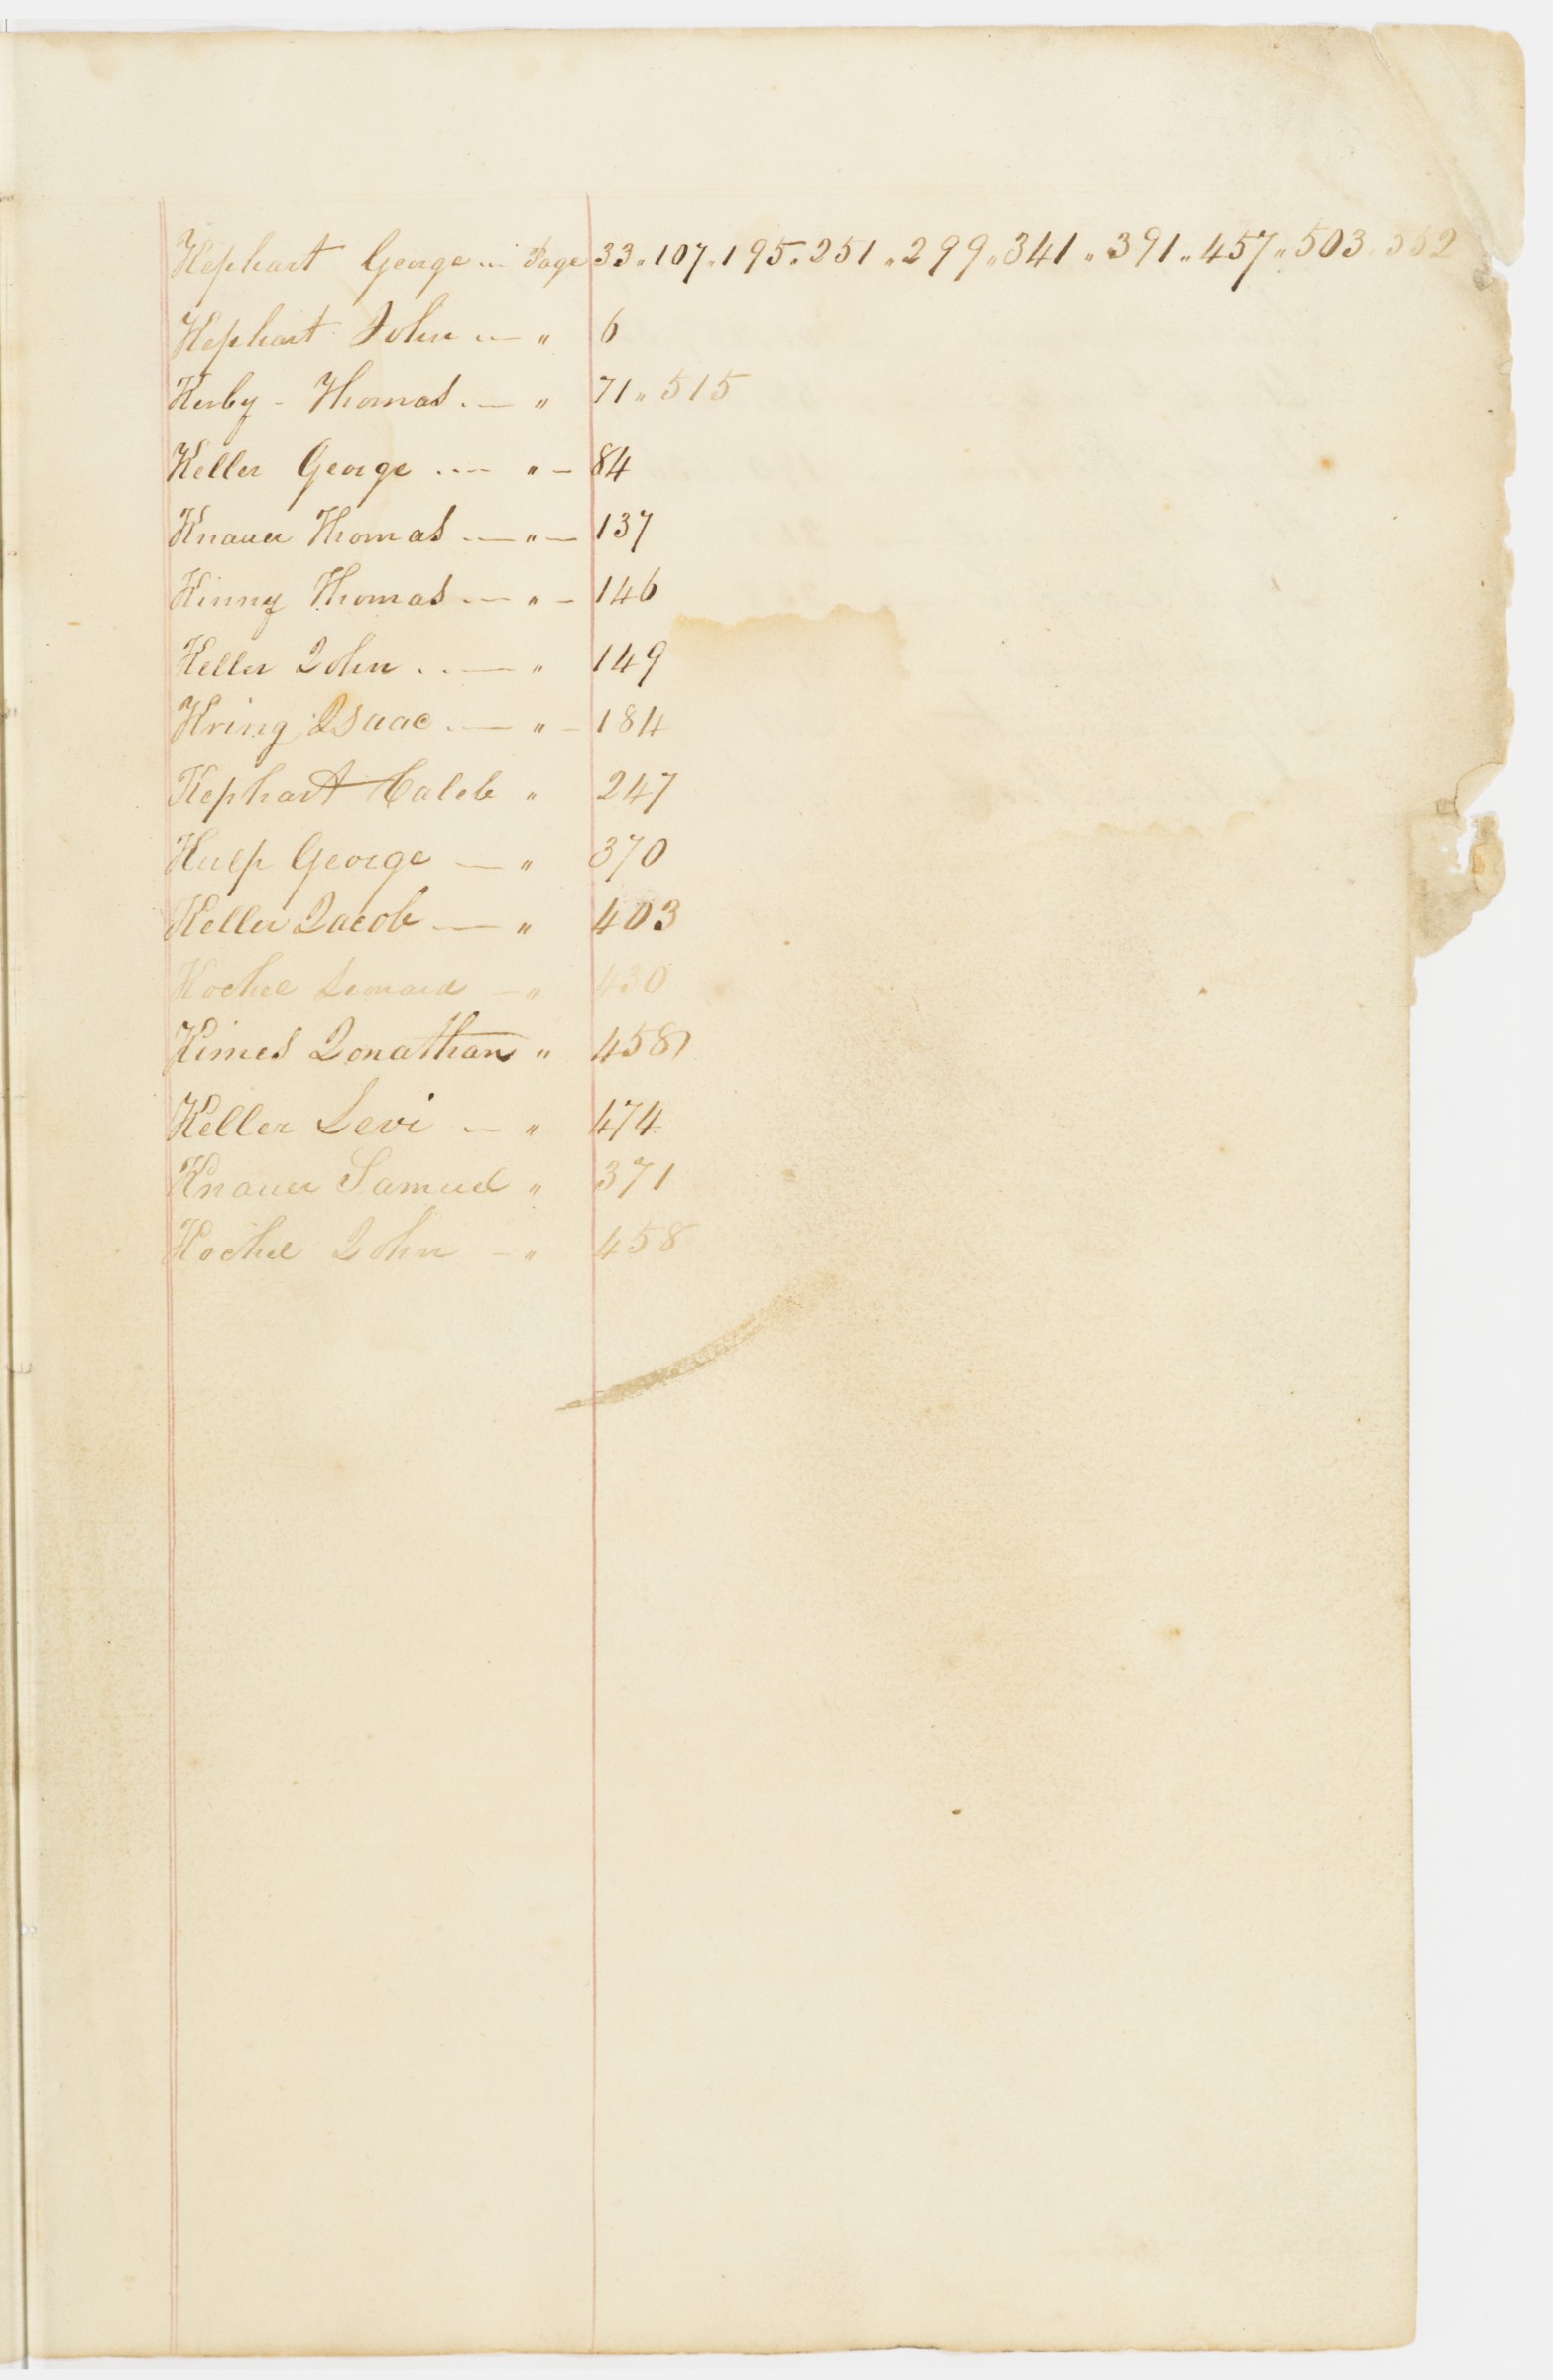 Kephart George ... Page 33 " 107 " 195 " 251 " 299 " 341 " 391 " 457 " 503 " 552
Kephart John — " 6
Kerby - Thomas — " 71 " 515
Keller George .... " — 84
Knauer Thomas — " — 137
Kinny Thomas — " — 146
Keller John .. — " 149
Kring Isaac — " — 184
Kephart Caleb " 247
Kulp George — " 370
Keller Jacob — " 403
Kochel Leonard — " 430
Kimes Jonathan " 458
Keller Levi — " 474
Knauer Samuel " 371
Kochel John — " 458